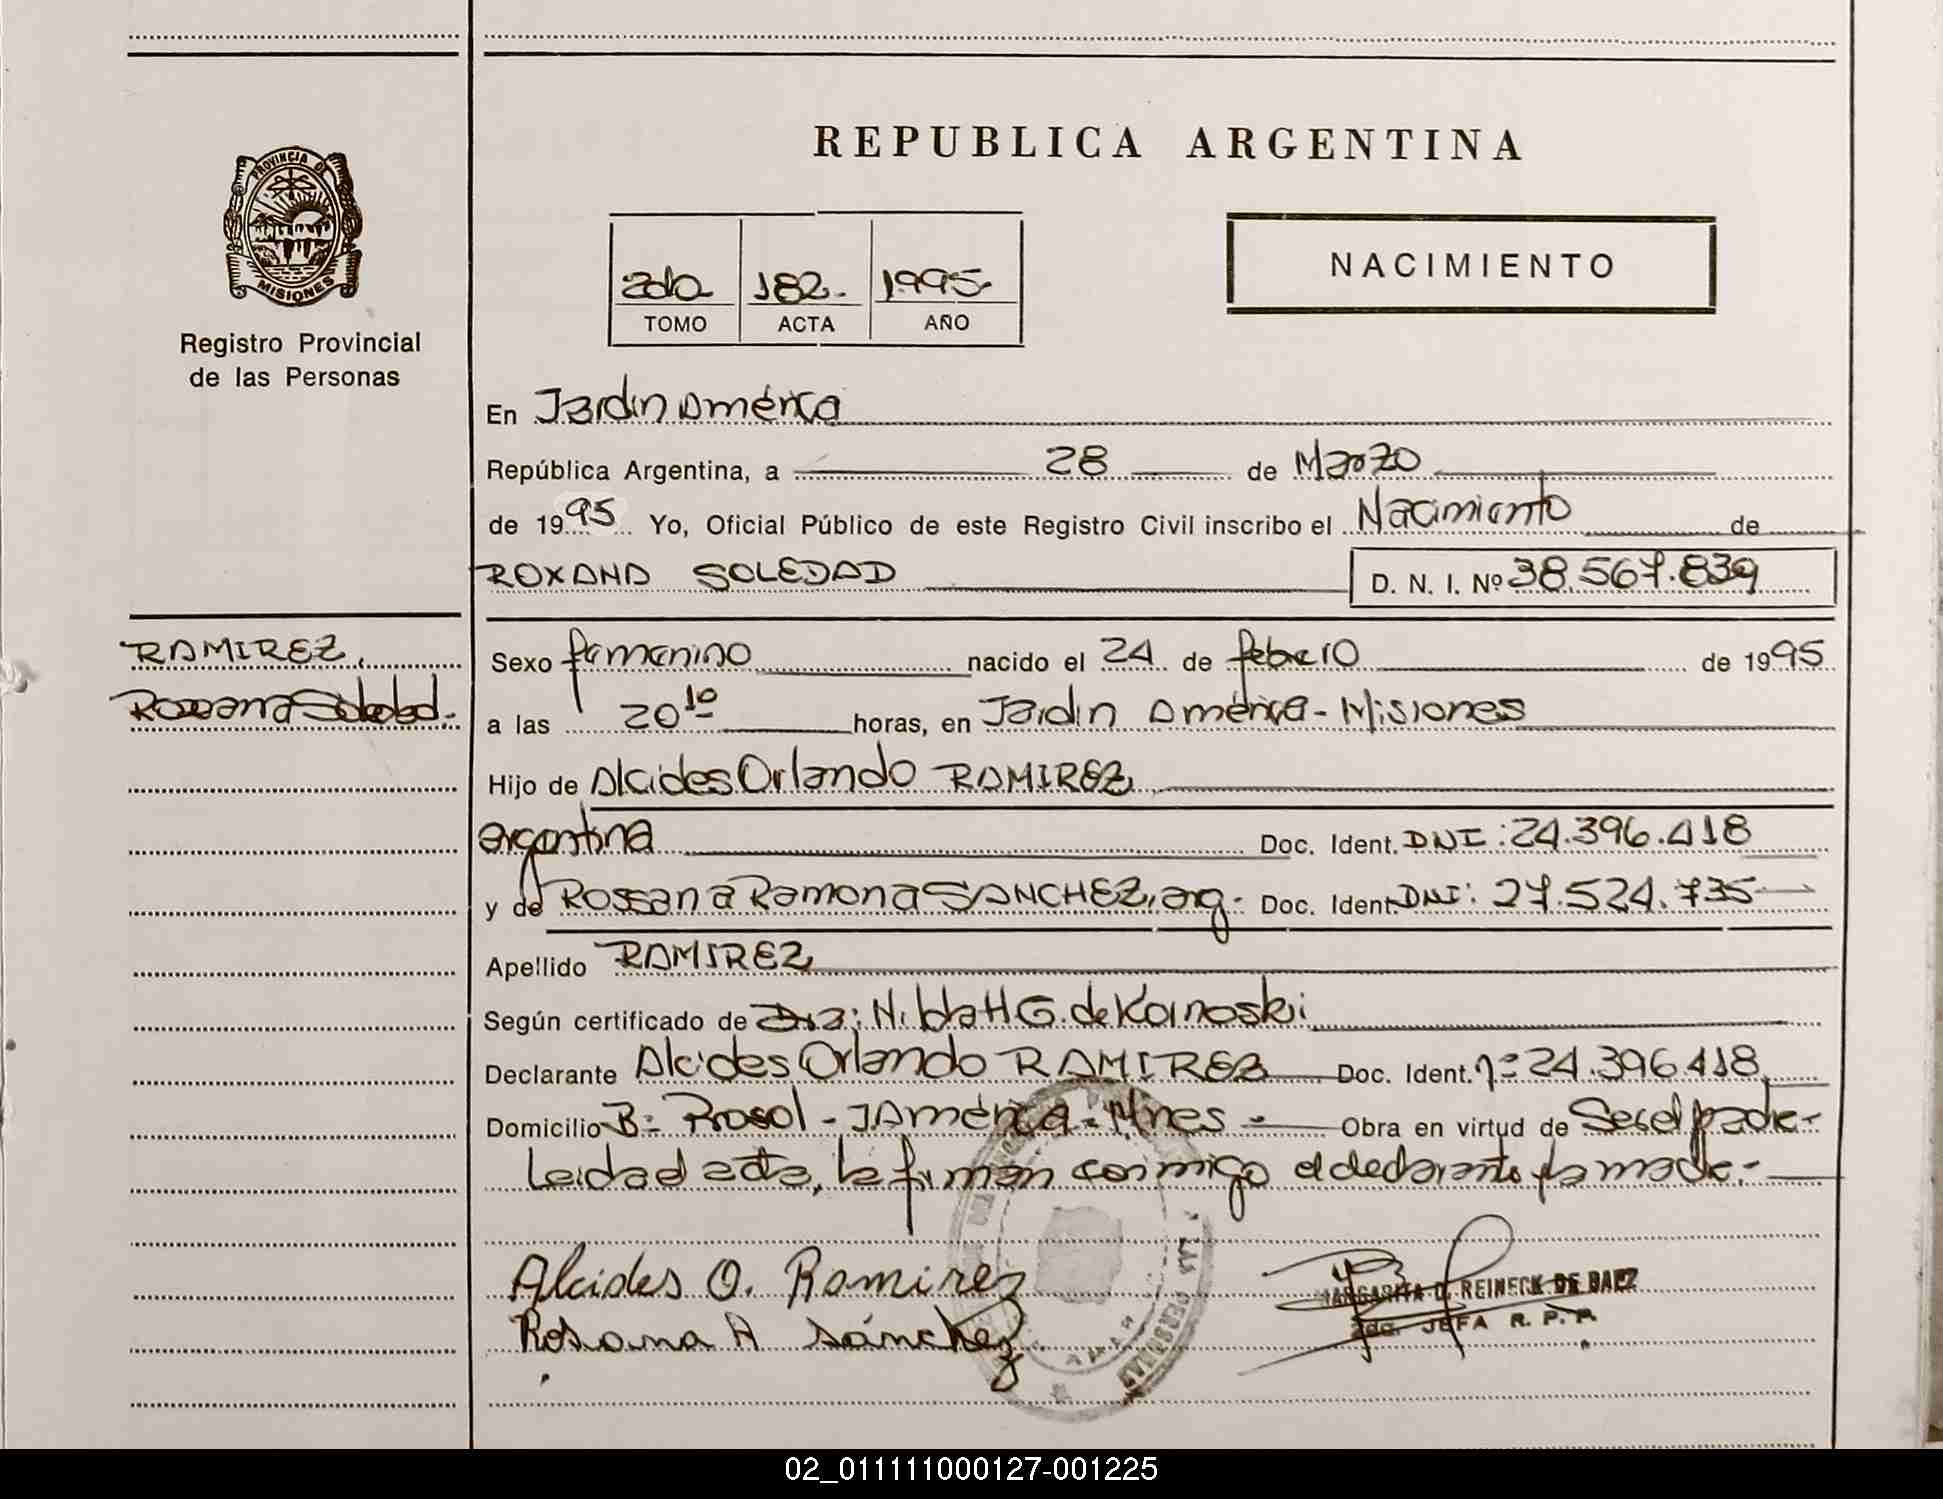 REPUBLICA ARGENTINA
PROVINCIA DE
MISIONES
Registro Provincial
de las Personas
2do 182. 1995
TOMO ACTA AÑO
NACIMIENTO
En Jardin América
República Argentina, a 28 de Marzo
de 1995 Yo, Oficial Público de este Registro Civil inscribo el Nacimiento de
ROXANA SOLEDAD D. N. I. Nº 38.567.839
RAMIREZ,
Soledad.
Sexo femenino nacido el 24 de febrero de 1995
a las 20 10 horas, en Jardin América - Misiones
Hijo de Alcides Orlando RAMIREZ,
argentina Doc. Ident. DNI: 24.396.418
y de Rossana Ramona SANCHEZ, arg. Doc. Ident. DNI: 27.524.735
Apellido RAMIREZ
Según certificado de Dra: Nilda H G. de
Declarante Alcides Orlando RAMIREZ Doc. Ident. nº 24.396.418,
Domicilio Bº Rosol - J América - Mnes - Obra en virtud de Ser el padre -
Leida el acta, la firman conmigo el declarante y la madre.-
Alcides O. Ramirez
Rosana R Sánchez
MARGARITA D. REINECK DE BAEZ
2da. JEFA R. P. P.
02_011111000127-001225